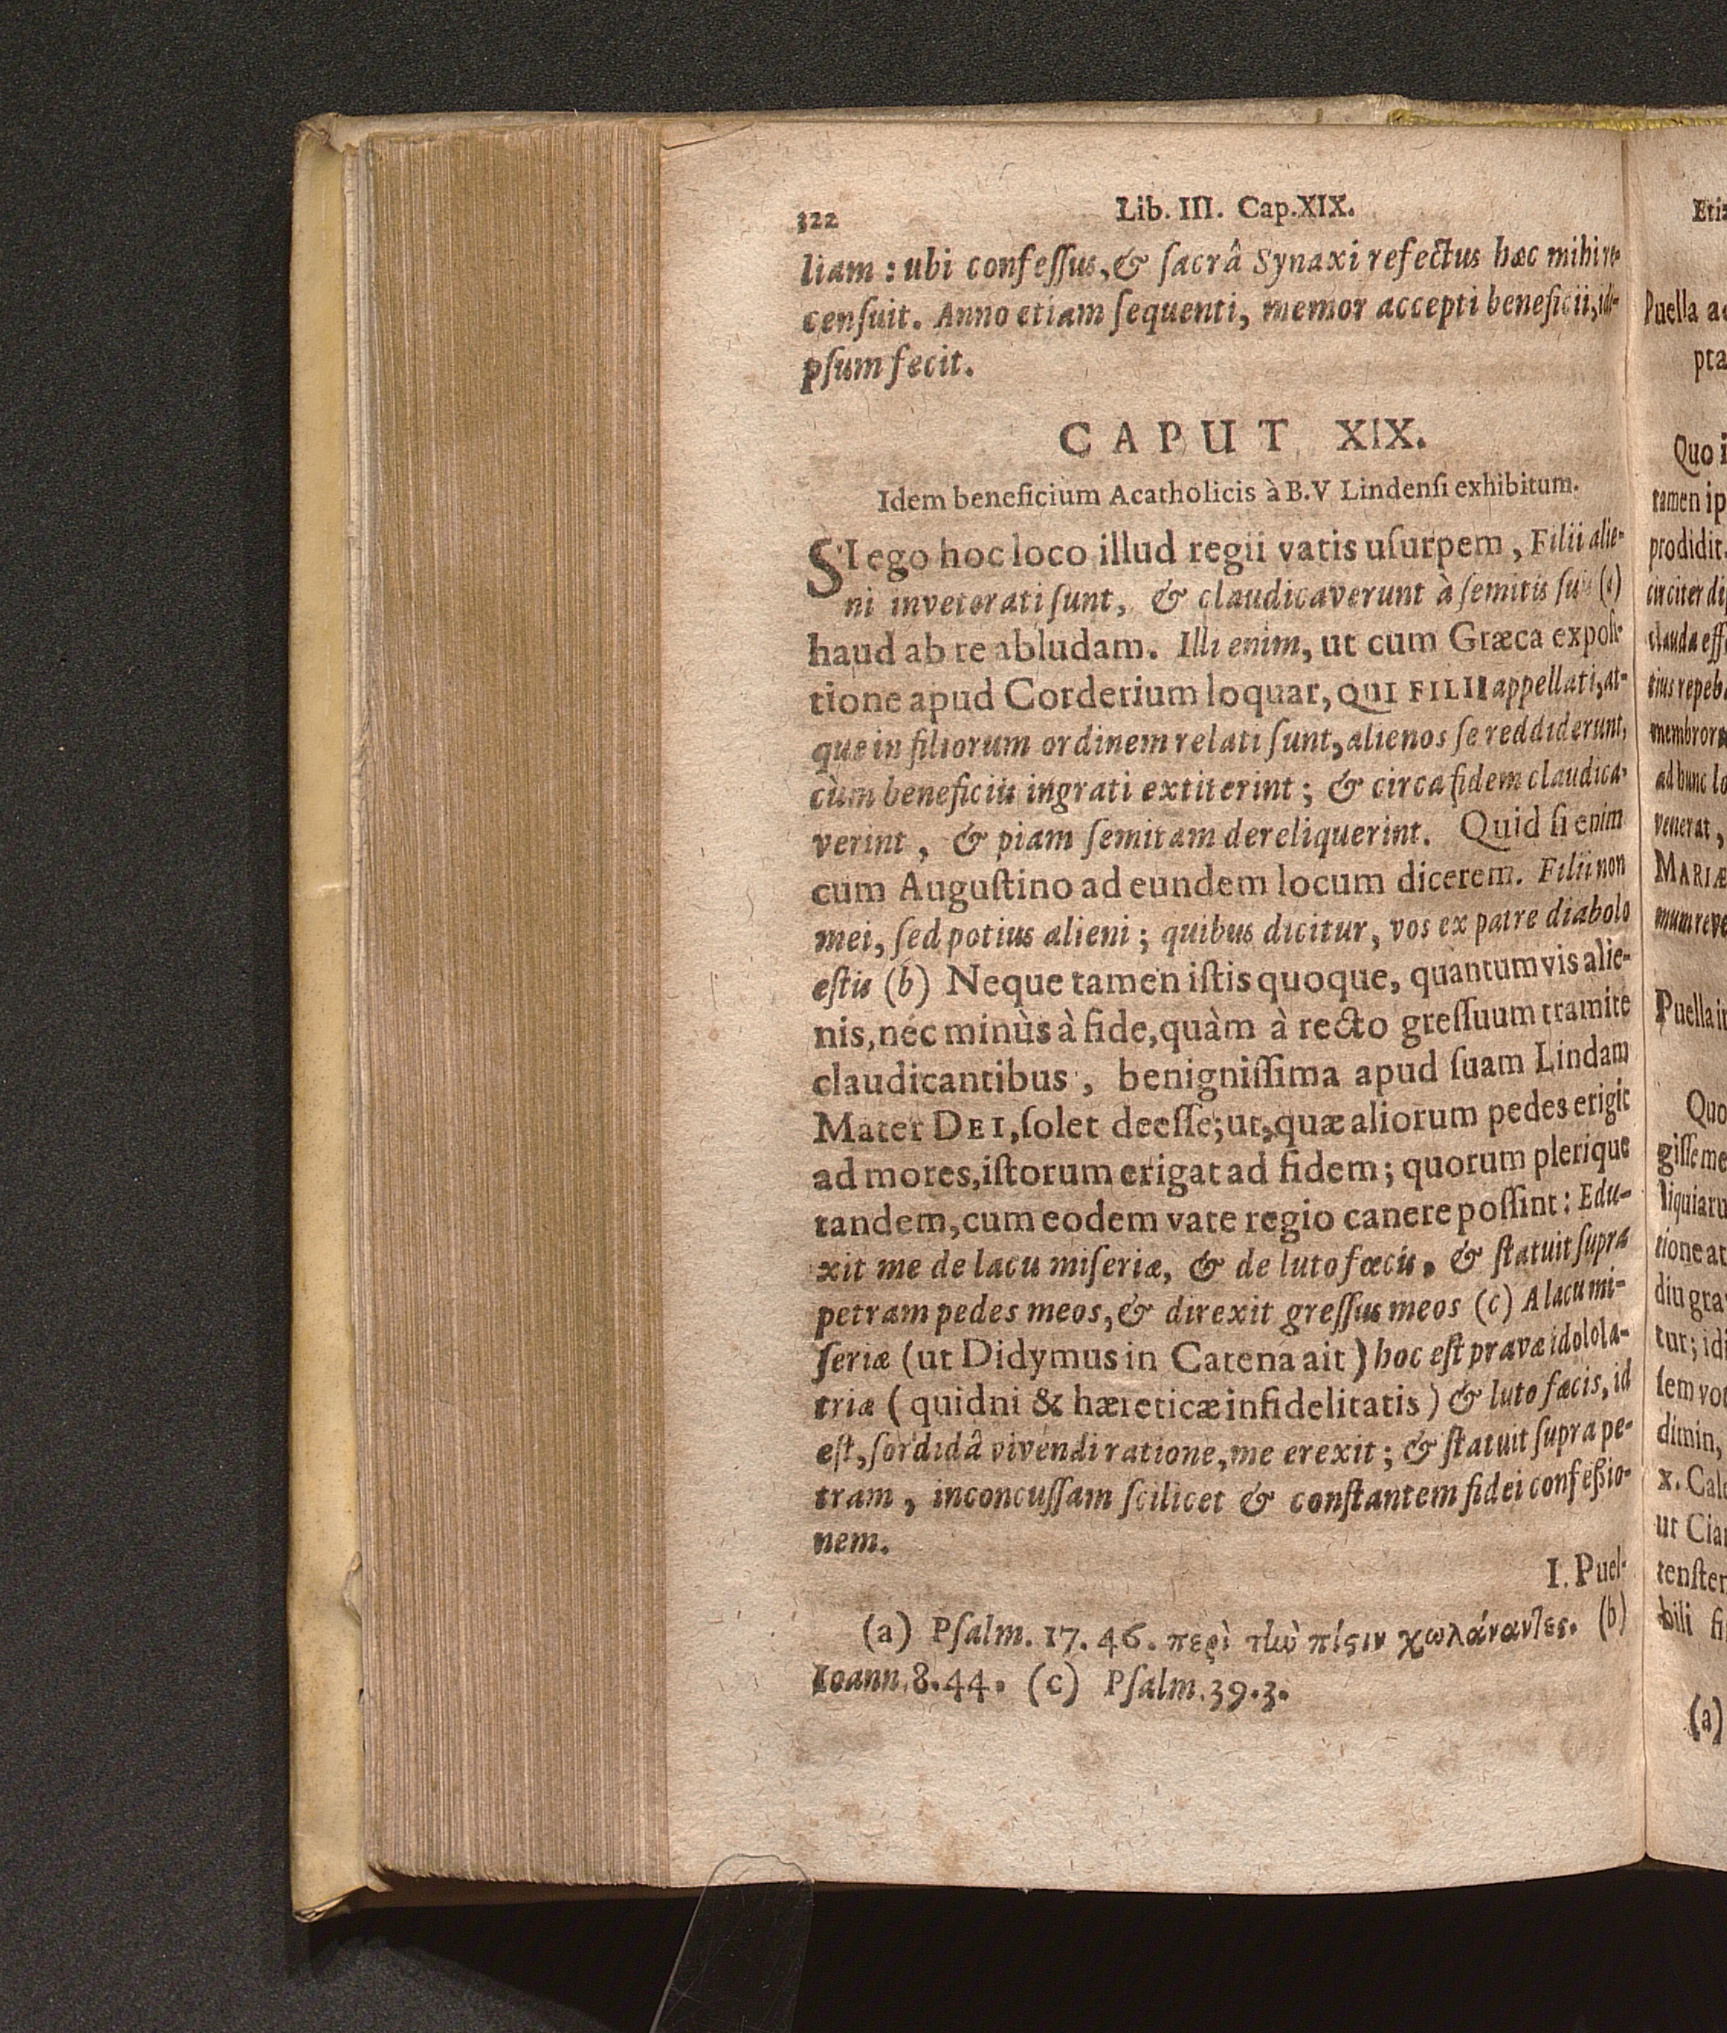 322 Lib. III. Cap. XIX.
liam : ubi confeſſus, & ſacrâ Synaxi refectus hæc mihi re-
cenſuit. Anno etiam ſequenti, memor accepti beneficii, idi-
pſum fecit.
CAPUT XIX.
Idem beneficium Acatholicis à B.V Lindenſi exhibitum.
SI ego hoc loco illud regii vatis uſurpem, Filii alie-
ni inveterati ſunt, & claudicaverunt à ſemitis ſuis (a)
haud ab re abludam. Illi enim, ut cum Græca expoſi-
tione apud Corderium loquar, QUI FILII appellati, at-
que in filiorum ordinem relati ſunt, alienos ſe reddiderunt,
cùm beneficiis ingrati extiterint ; & circa fidem claudica-
verint, & piam ſemitam dereliquerint. Quid ſi enim
cum Auguſtino ad eundem locum dicerem. Filii non
mei, ſed potius alieni ; quibus dicitur, vos ex patre diabolo
eſtis (b) Neque tamen iſtis quoque, quantumvis alie-
nis, nec minùs à fide, quàm à recto greſſuum tramite
claudicantibus, benigniſſima apud ſuam Lindam
Mater DEI, ſolet deeſſe; ut, quæ aliorum pedes erigit
ad mores, iſtorum erigat ad fidem; quorum plerique
tandem, cum eodem vate regio canere poſſint : Edu-
xit me de lacu miſeriæ, & de luto fœcis, & ſtatuit ſupra
petram pedes meos, & direxit greſſus meos (c) A lacu mi-
ſeriæ (ut Didymus in Catena ait) hoc eſt pravæ idolola-
triæ (quidni & hæreticæ infidelitatis) & luto fæcis, id
eſt, ſordidâ vivendi ratione, me erexit ; & ſtatuit ſupra pe-
tram, inconcuſſam ſcilicet & conſtantem fidei confeßio-
nem.
I. Puel-
(a) Pſalm. 17. 46. περὶ τὴν πίςιν χωλάναντες. (b)
Ioann. 8. 44. (c) Pſalm. 39. 3.
Puella
Quo
tamen
prodidit.
circiter
clauda
venerat,
MARIÆ
Puella
Quo
x.
bili
(a)